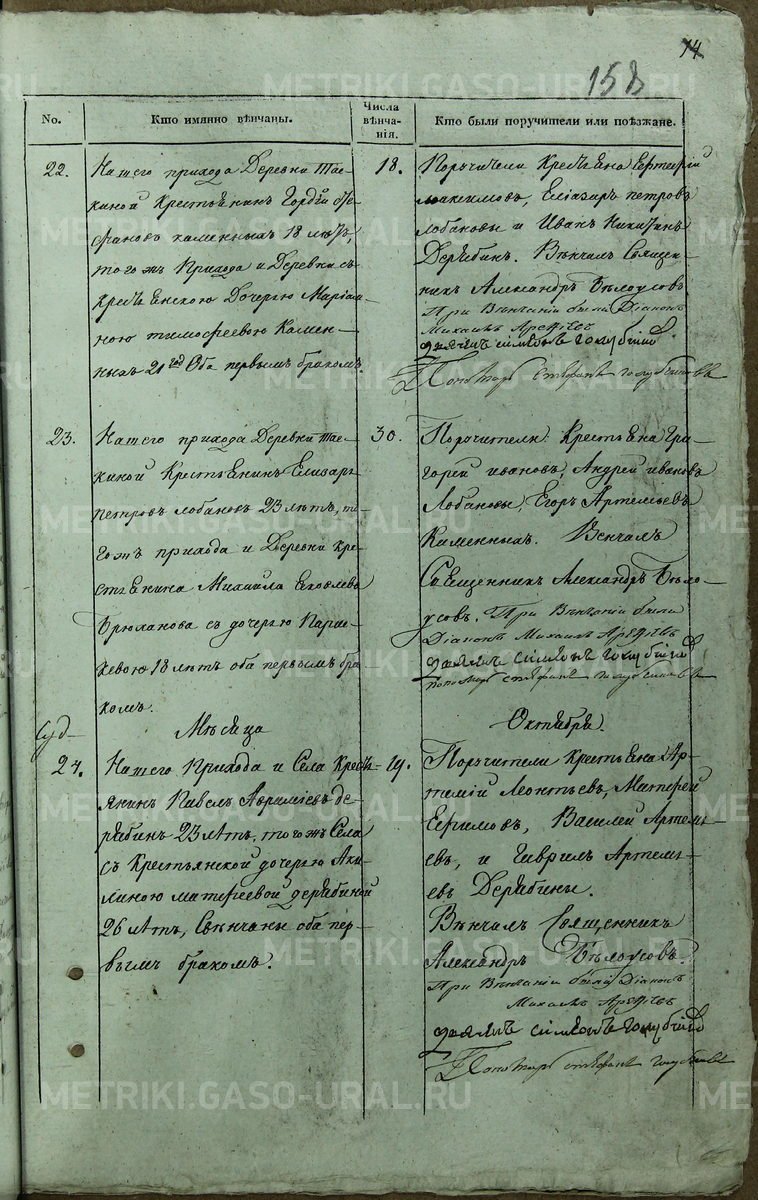 14
158
No.
Кто имянно вѣнчаны.
Числа вѣнча-
нія.
Кто были поручители или поѣзжане.
22.
Нашего прихода Деревни Тас-
киной Крестьянинъ Гордѣй Сте-
фановъ Каменныхъ 18 лѣтъ,
того жъ Прихода и Деревни съ
Крестьянскою Дочерью Маріам-
ною Тимофеевою Камен-
ныхъ 21 год Оба первымъ бракомъ.
18.
Поручители Крестьяна
Максимовъ, Еліазаръ Петровъ
Лобановы и Иванъ Никитинъ
Дерябинъ. Вѣнчалъ Священ-
никъ Александръ Бѣлоусовъ.
При Вѣнчаніи были Діаконъ
Михаилъ Арефьевъ
дьячекъ Симеонъ
Пономарь Стефанъ
23.
Нашего прихода Деревни Тас-
киной Крестьянинъ Елизаръ
Петровъ Лобановъ 23 лѣтъ, то-
гожъ прихода и Деревни Кре-
стьянина Михаила Яковлева
Брюханова съ дочерью Парас-
кевою 18 лѣтъ оба первымъ бра-
комъ.
30.
Поручители Крестьяна Гри-
горей Ивановъ, Андрей Ивановъ
Лобановы, Егоръ Артемьевъ
Каменныхъ. Венчалъ
Священникъ Александръ Бѣло-
усовъ. При Вѣнчаніи были
Діаконъ Михаилъ Арефьевъ
дьячекъ Симеонъ
пономарь Стефанъ
Мѣсяца
Октября.
24.
Нашего Прихода и Села Кресть-
янинъ Павелъ Авраміевъ Де-
рябинъ 23 лѣтъ, того жъ Села
съ Крестьянской дочерью Аки-
линою Матфеевой Дерябиной
26 лѣтъ, Свѣнчаны оба пер-
вымъ бракомъ.
19.
Поручители Крестьяна Ар-
темій Леонтьевъ, Матфей
Ефимовъ, Василей Артемь-
евъ, и Гаврилъ Артемь-
евъ Дерябины.
Вѣнчалъ Священникъ
Александръ Бѣлоусовъ.
При Вѣнчаніи были Діаконъ
Михаилъ Арефьевъ
дьячекъ Симеонъ
Пономарь Стефанъ
METRIKI.GASO-URAL.RU